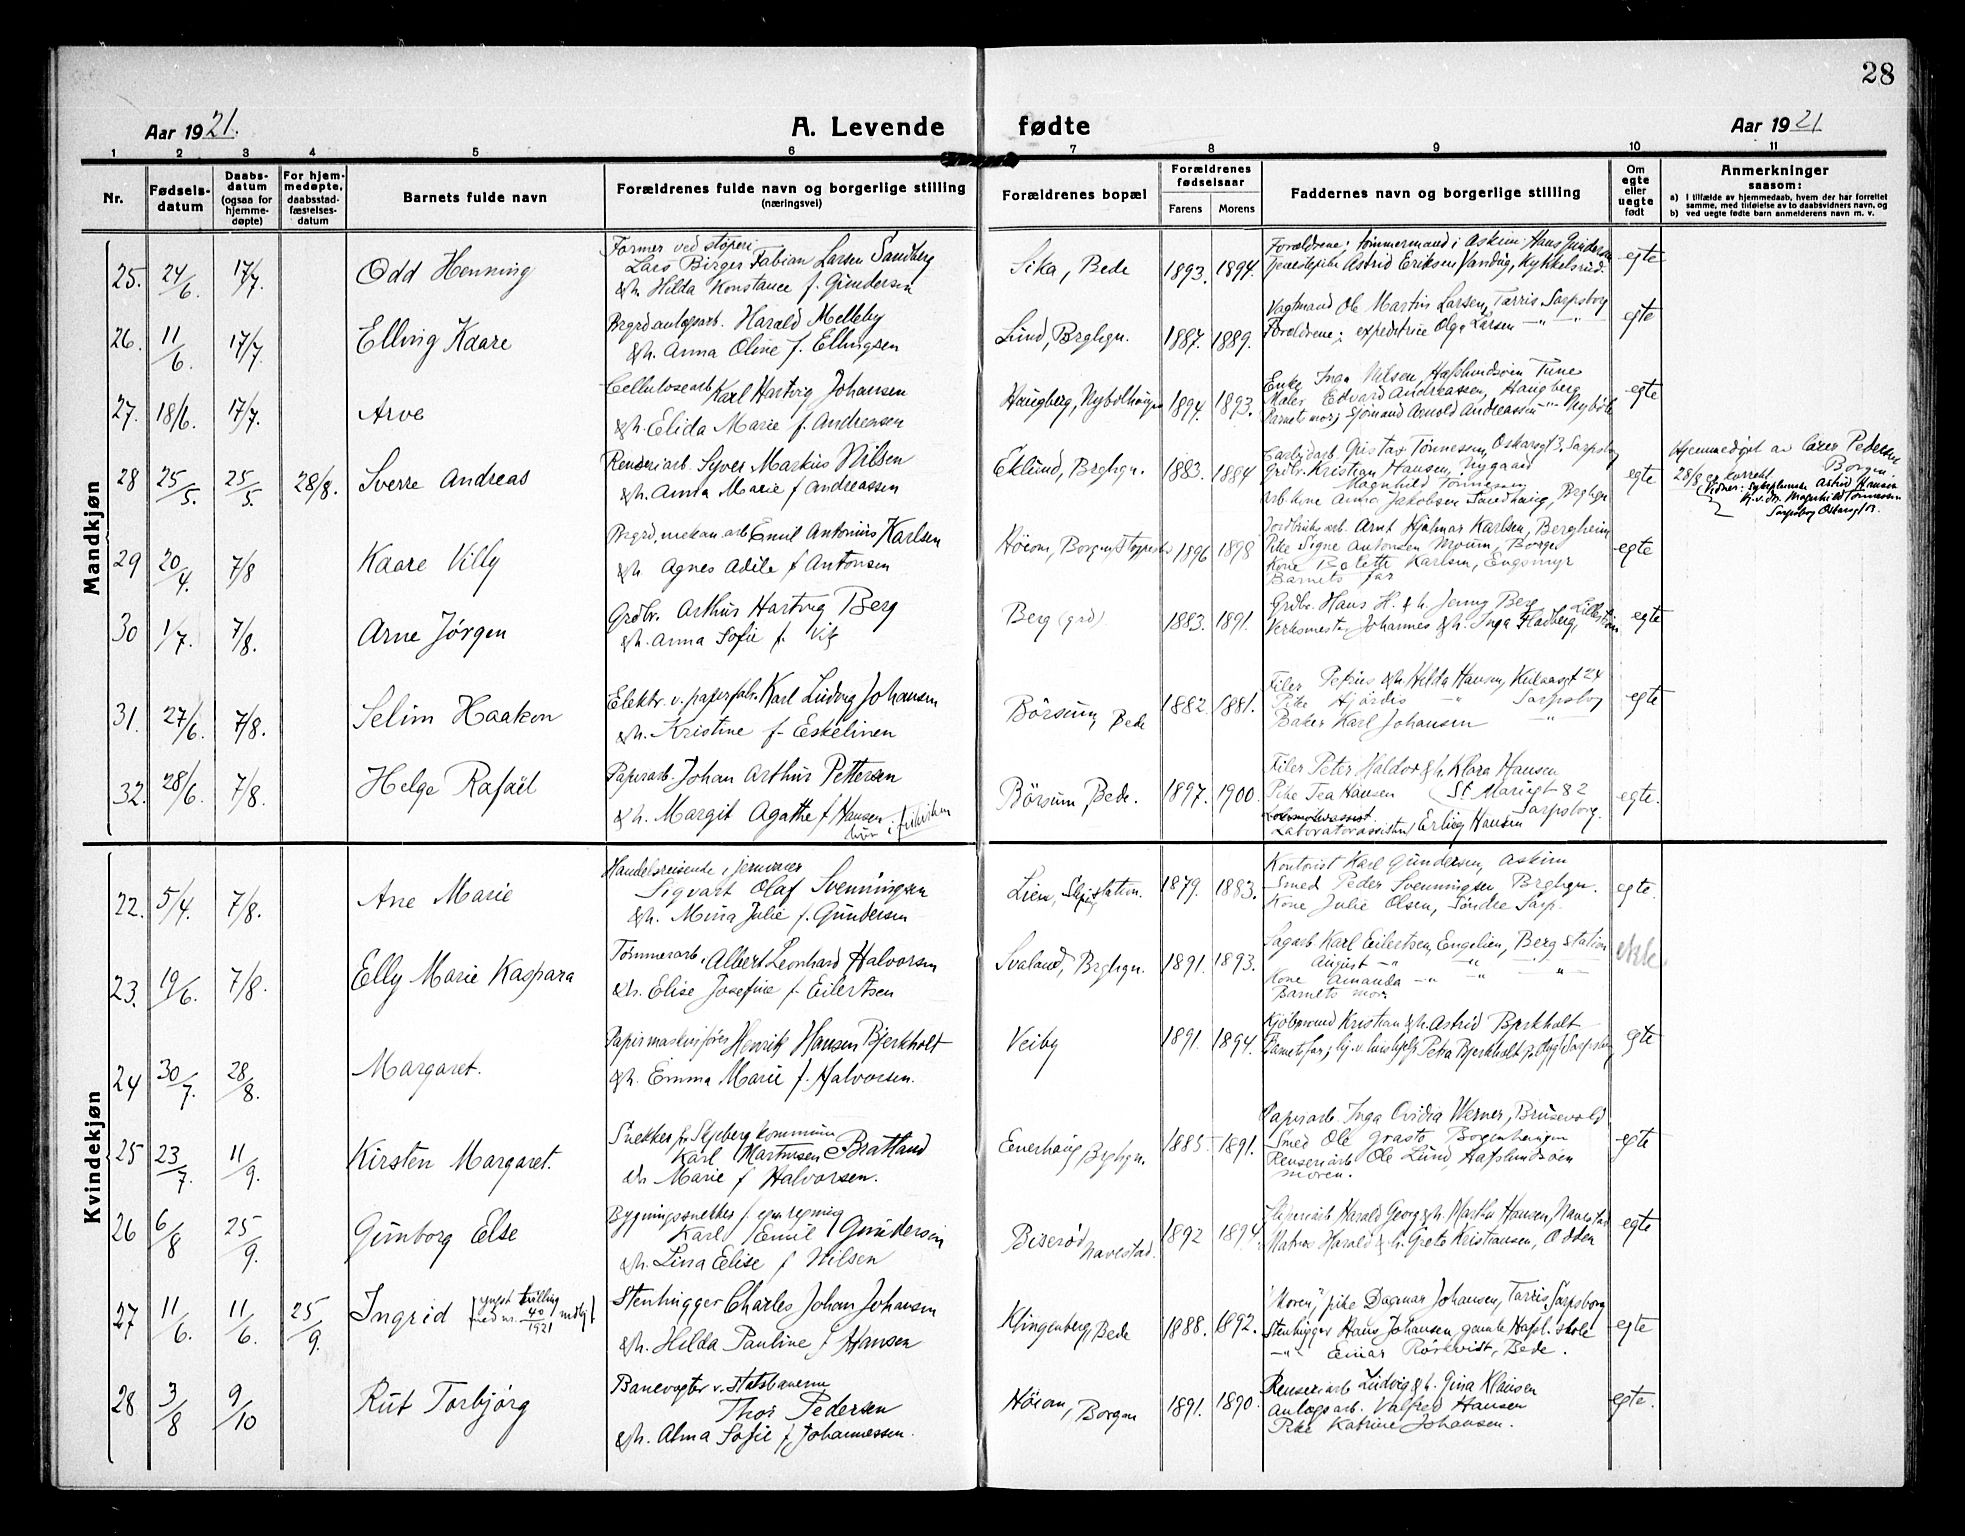 28
Aar 1921.
A. Levende fødte
Aar 1921
1 2 3 4 5 6 7 8 9 10 11
Nr.
Fødselsdatum
Daabsdatum (ogsaa for hjemmedøpte)
For hjemmedøpte, daabsstadfæstelsesdatum
Barnets fulde navn
Forældrenes fulde navn og borgerlige stilling
(næringsvei)
Forældrenes bopæl
Forældrenes fødselsaar
Farens Morens
Faddernes navn og borgerlige stilling
Om egte eller uegte født
Anmerkninger
saasom:
a) I tilfælde av hjemmedaab, hvem der har forrettet samme, med tilføielse av to daabsvidners navn, og
b) ved uegte fødte barn anmelderens navn m. v.
Mandkjøn
25. 24/6. 17/7. Odd Henning
Former ved støperi
Lars Birger Fabian Larsen Sandberg
&h. Hilda Konstance f. Gundersen
Sika, Bede 1893. 1894.
Forældrene; tømmermand i Askim Hans Gundersen
Astrid Eriksen Vandug, Kykkelsrud.
egte
26. 11/6. 17/7. Elling Kaare
Harald Melleby
&h. Anna Oline f. Ellingsen
Lund, Brghgn. 1887. 1889.
Vagtmand Ole Martin Larsen, Tarris Sarpsborg
Forældrene; expeditrice Olga Larsen -"- -"-
egte
27. 18/6. 17/7. Arve
Cellulosearb Karl Hartvig Johansen
&h. Elida Marie f. Andreassen
Haugberg, 1894. 1893.
Enke Inga Nilsen, Hafslundsøen Tune
Maler Edvard Andreassen, Haugberg
Barnets mor; Sjømand Arnold Andreassen -"-
egte
28 25/5. 25/5 28/8. Sverre Andreas
Renseriarb. Syver Markus Nilsen
&h. Anna Marie f Andreassen
Eklund, Brghgn. 1883. 1884
Gustav Tønnesen, Oskarsgt 3. Sarpsborg
Grdbr. Kristian Hansen, Nygaard
Magnhild Tønnesen
Anna Jakobsen Brghgn
egte
Hjemmedøpt av Pedersen
Borgen
Vidner: Astrid Hansen
Magnhild Tønnessen
Sarpsborg
29 20/4. 7/8 Kaare Villy
Emil Antonius Karlsen
&h. Agnes Adile f Antonsen
Høiom, Borgen 1896 1898
Arnt Hjalmar Karlsen, Bergheim
Pike Signe Antonsen Moum, Borge
Kone Bolette Karlsen, Engsmyr
Barnets far
egte
30 1/7. 7/8. Arne Jørgen
Grdbr. Arthur Hartvig Berg
&h. Anna Sofie f. Vik
Berg (grd) 1883. 1891.
Grdbr. Hans H. & h. Jenny Berg
Verksmester Johannes &h. Inga Fladberg, Lillestrøm
egte
31. 27/6. 7/8. Selim Haakon
Elektr. v. papirfabr. Karl Ludvig Johansen
&h. Kristine f. Eskelinen
Børsum, Bede 1882. 1881.
Filer Petrus &h. Hilda Hansen, Kulaasgt 24
Pike Hjørdis -"- Sarpsborg
Baker Karl Johansen -"-
egte
32. 28/6. 7/8. Helge Rafael
Papirarb. Johan Arthur Pettersen
&h. Margit Agathe f Hansen
hun i frikirken
Børsum, Bede. 1897. 1900.
Filer Peter Haldor & h. Klara Hansen
Pike Tea Hansen St. Mariegt 82
Sarpsborg.
Laboratorieassistent Erling Hansen
egte.
Kvindekjøn
22. 5/4. 7/8. Ane Marie
Handelsreisende i jernvarer
Sigvart Olaf Svenningsen
&h. Mina Julie f. Gundersen
Lien, station. 1879. 1883.
Kontorist Karl Gundersen, Askim
Smed Peder Svenningsen, Brghgn.
Kone Julie Olsen, Søndre Sarp.
egte.
23. 19/6. 7/8. Elly Marie Kaspara
Tømmerarb. Albert Leonhard Halvorsen
&h. Elise Josefine f. Eilertsen
Svaland, Brghgn. 1891. 1893.
Sagarb Karl Eilertsen, Engelien, Berg station
August -"- -"- -"-
Kone Amanda -"- -"- -"-
Barnets mor
24 30/7. 28/8. Margaret.
Papirmaskinfører Henrik Hansen Bjerkholt
&h. Emma Marie f. Halvorsen.
Veiby 1891. 1894.
Kjøbmand Kristian &h. Astrid Bjerkholt
Barnets far; Petra Bjerkholt Sarpsborg
egte
25 23/7. 11/9. Kirsten Margaret.
Snekker f. Skjeberg kommune
Karl Martinsen Bratland
&h. Marie f Halvorsen.
Enerhaug Brghgn. 1885. 1891.
Papirarb. Inga Ovidia Werner, Brusevold
Smed Ole Grastø Borgenhaugen
Renseriarb Ole Lund, Hafslundsøen
moren.
egte
26 6/8 25/9. Gunborg Else
Bygningssnekker f. egen regning
Karl Emil Gundersen
&h. Lina Elise f Nilsen
Biserød, Navestad. 1892 1894.
Papirarb Harald Georg &h. Martha Hansen, Navestad
Matros Harald & h. Grete Kristiansen, Odden
egte
27 11/6. 11/6. 25/9. Ingrid (yngst tvilling med nr. 40/1921 mdkj)
Stenhugger Charles Johan Johansen
&h. Hilda Pauline f Hansen
Klingenberg, Bede 1888. 1892.
"Moren", pike Dagmar Johansen, Tarris, Sarpsborg
Stenhugger Hans Johansen, gamle Hafsl. skole
-"- Einar Rørkvidt, Bede.
egte
28 3/8 9/10 Rut Torbjørg
Banevogter v. Statsbanerne
Thor Pedersen
&h. Alma Sofie f Johannessen.
Høiom, Borgen 1891. 1890.
Renseriarb Ludvig &h. Gina Klausen
anlægsarb. Valfred Hansen
Pike Katrine Johansen.
egte.